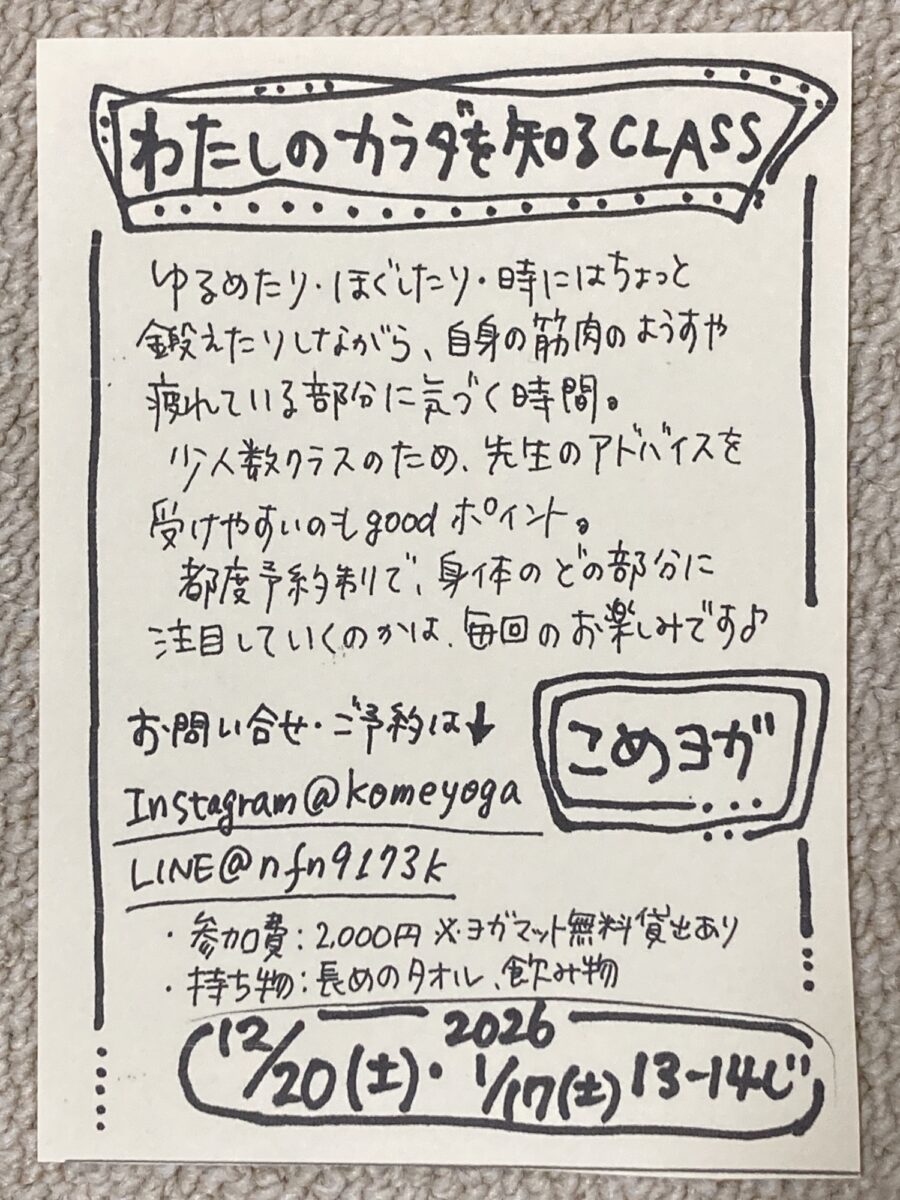 わたしのカラダを知るCLASS
ゆるめたり・ほぐしたり・時にはちょっと
鍛えたりしながら、自身の筋肉のようすや
疲れている部分に気づく時間。
少人数クラスのため、先生のアドバイスを
受けやすいのもgoodポイント。
都度予約制で、身体のどの部分に
注目していくのかは、毎回のお楽しみです♪
お問い合せ・ご予約は↓
こめヨガ
Instagram@komeyoga
LINE@nfn9173k
・参加費:2,000円 ※ヨガマット無料貸出あり
・持ち物:長めのタオル、飲み物
2026
12/20(土)・1/17(土)13-14じ